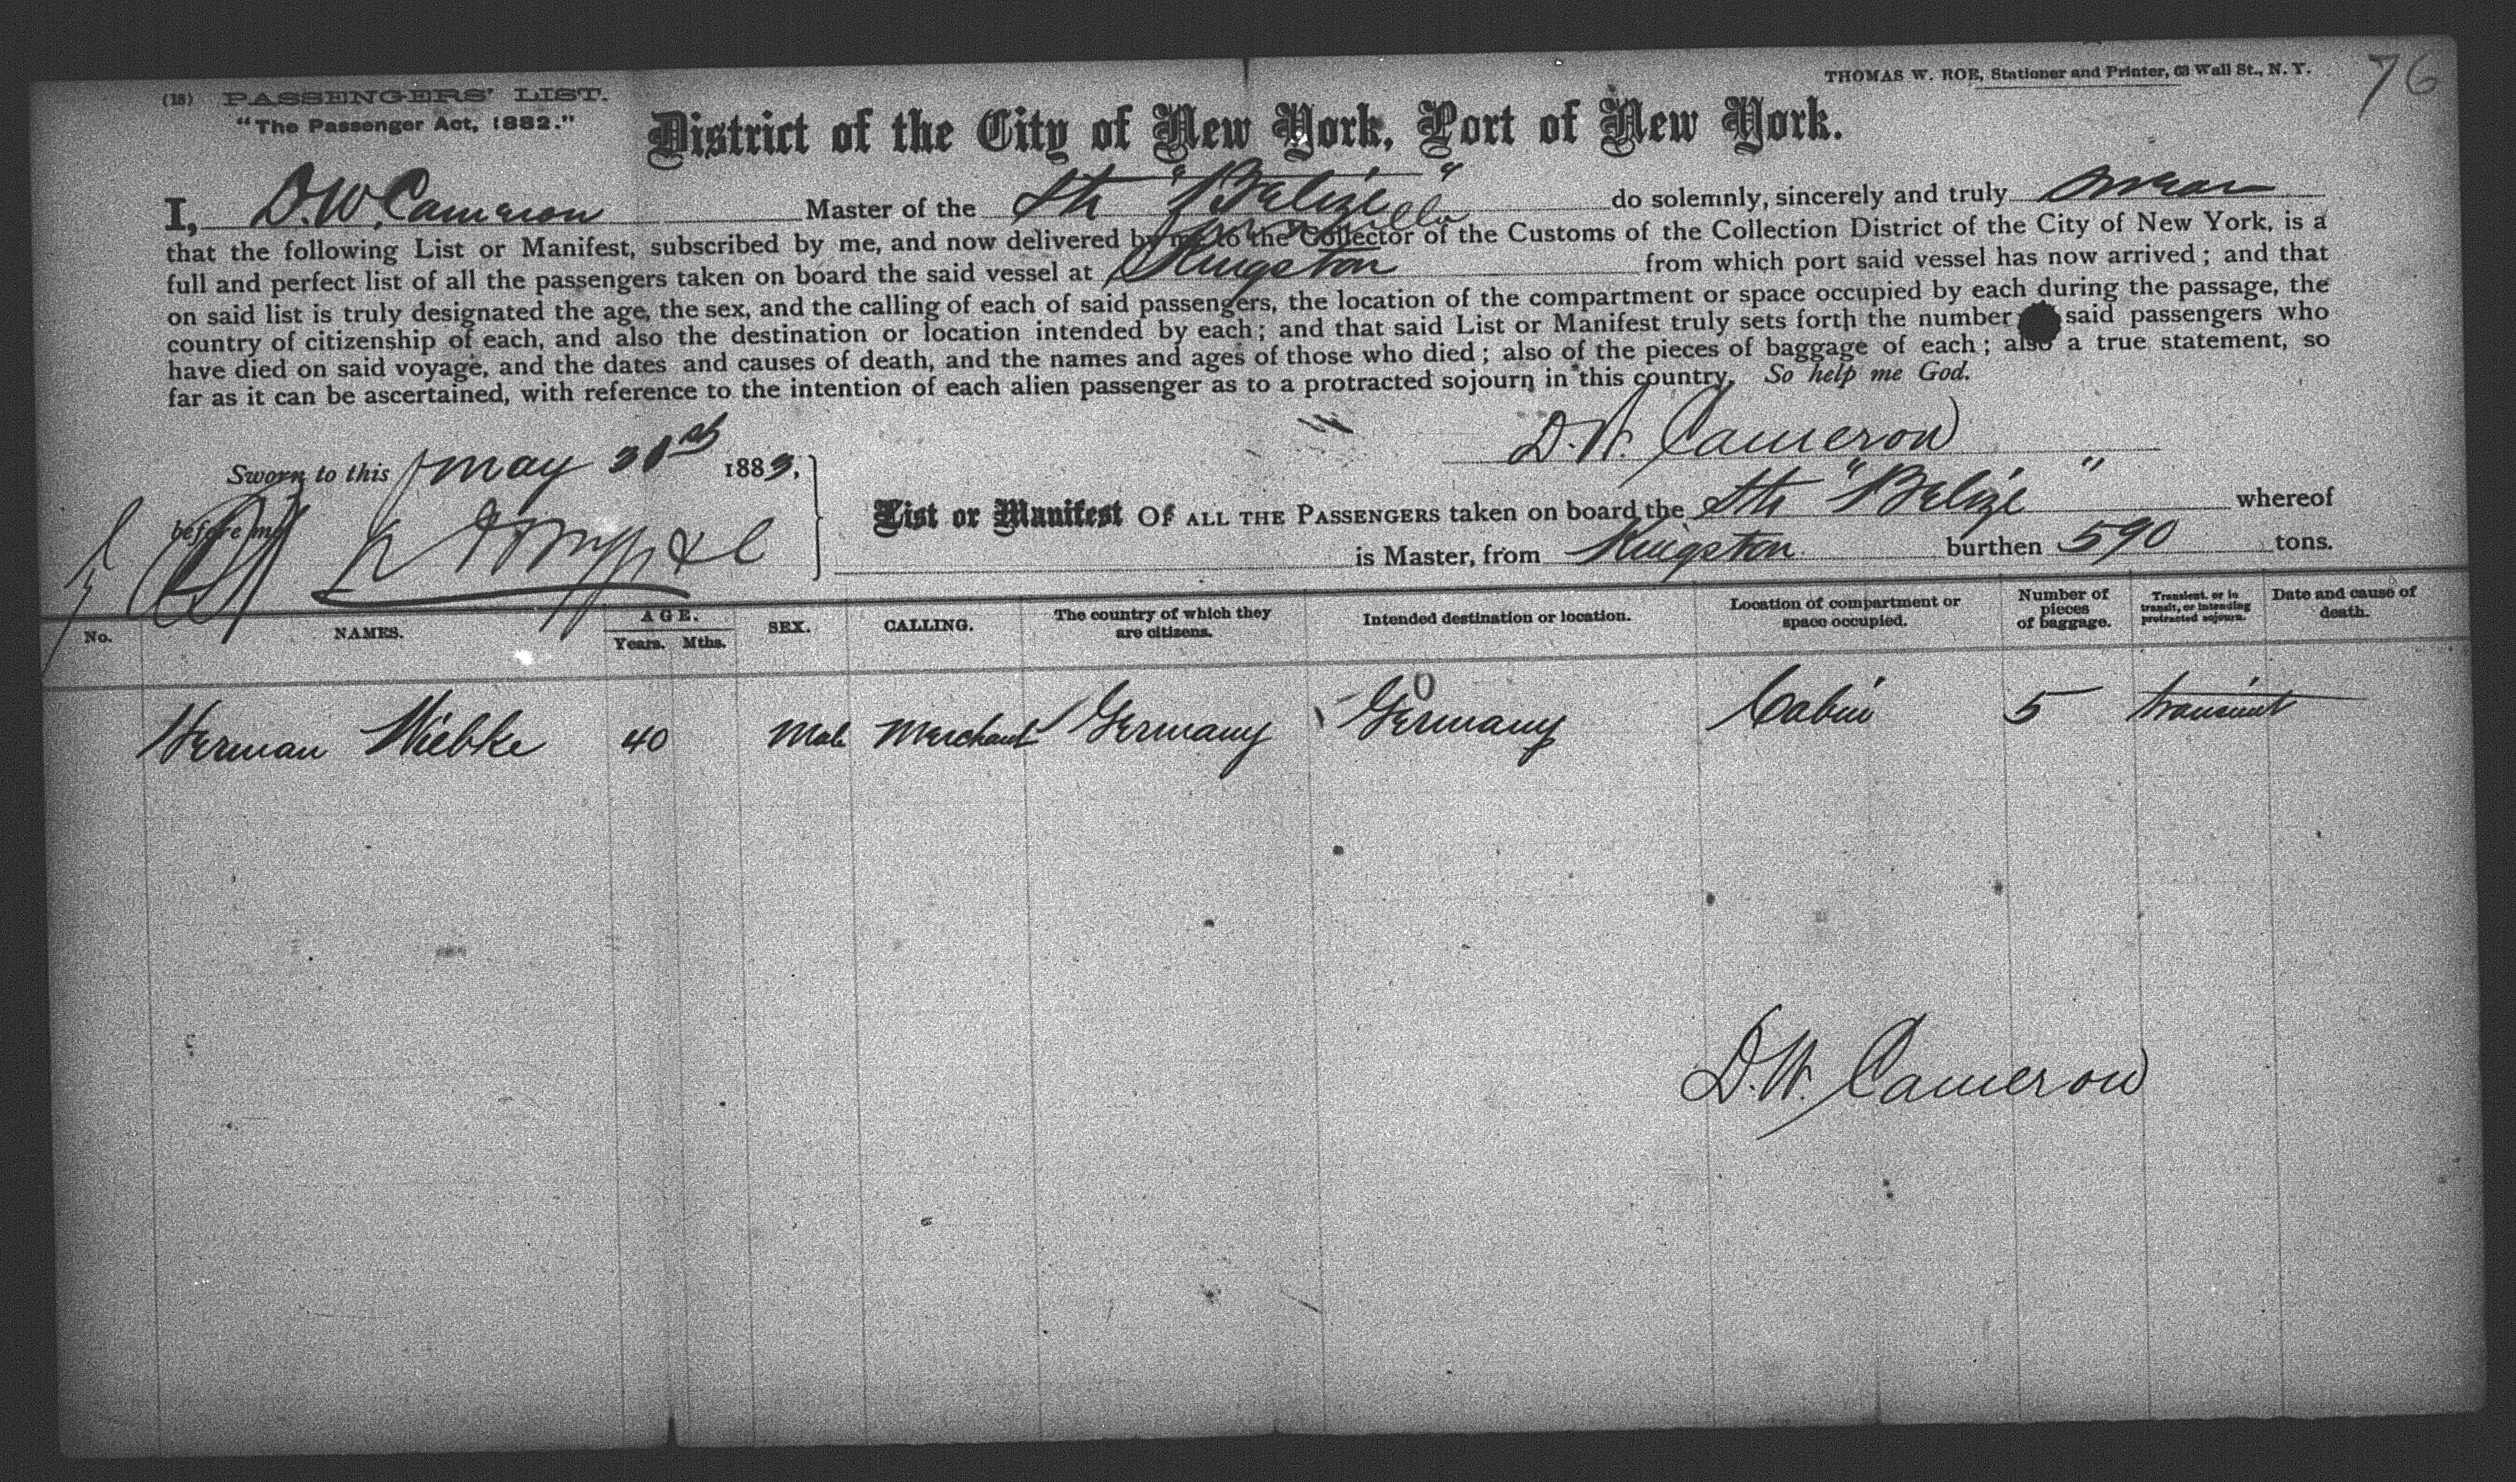 76
THOMAS W. ROE, Stationer and Printer, 63 Wall St., N. Y.
(18) PASSENGERS' LIST.
"The Passenger Act, 1882."
District of the City of New York, Port of New York.
I, D. W. Cameron Master of the Str "Belize" do solemnly, sincerely and truly swear
that the following List or Manifest, subscribed by me, and now delivered by me to the Collector of the Customs of the Collection District of the City of New York, is a
full and perfect list of all the passengers taken on board the said vessel at Kingston from which port said vessel has now arrived; and that
on said list is truly designated the age, the sex, and the calling of each of said passengers, the location of the compartment or space occupied by each during the passage, the
country of citizenship of each, and also the destination or location intended by each; and that said List or Manifest truly sets forth the number said passengers who
have died on said voyage, and the dates and causes of death, and the names and ages of those who died; also of the pieces of baggage of each; also a true statement, so
far as it can be ascertained, with reference to the intention of each alien passenger as to a protracted sojourn in this country. So help me God.
D. W. Cameron
Sworn to this May 31st 1883,
before me
List or Manifest OF ALL THE PASSENGERS taken on board the Str "Belize" whereof
is Master, from Kingston burthen 590 tons.
No. NAMES. AGE. Years. Mths. SEX. CALLING. The country of which they are citizens. Intended destination or location. Location of compartment or space occupied. Number of pieces of baggage. Transient, or in transit, or intending protracted sojourn. Date and cause of death.
Herman Wiebke 40 Male Merchant Germany Germany Cabin 5 transient
D. W. Cameron